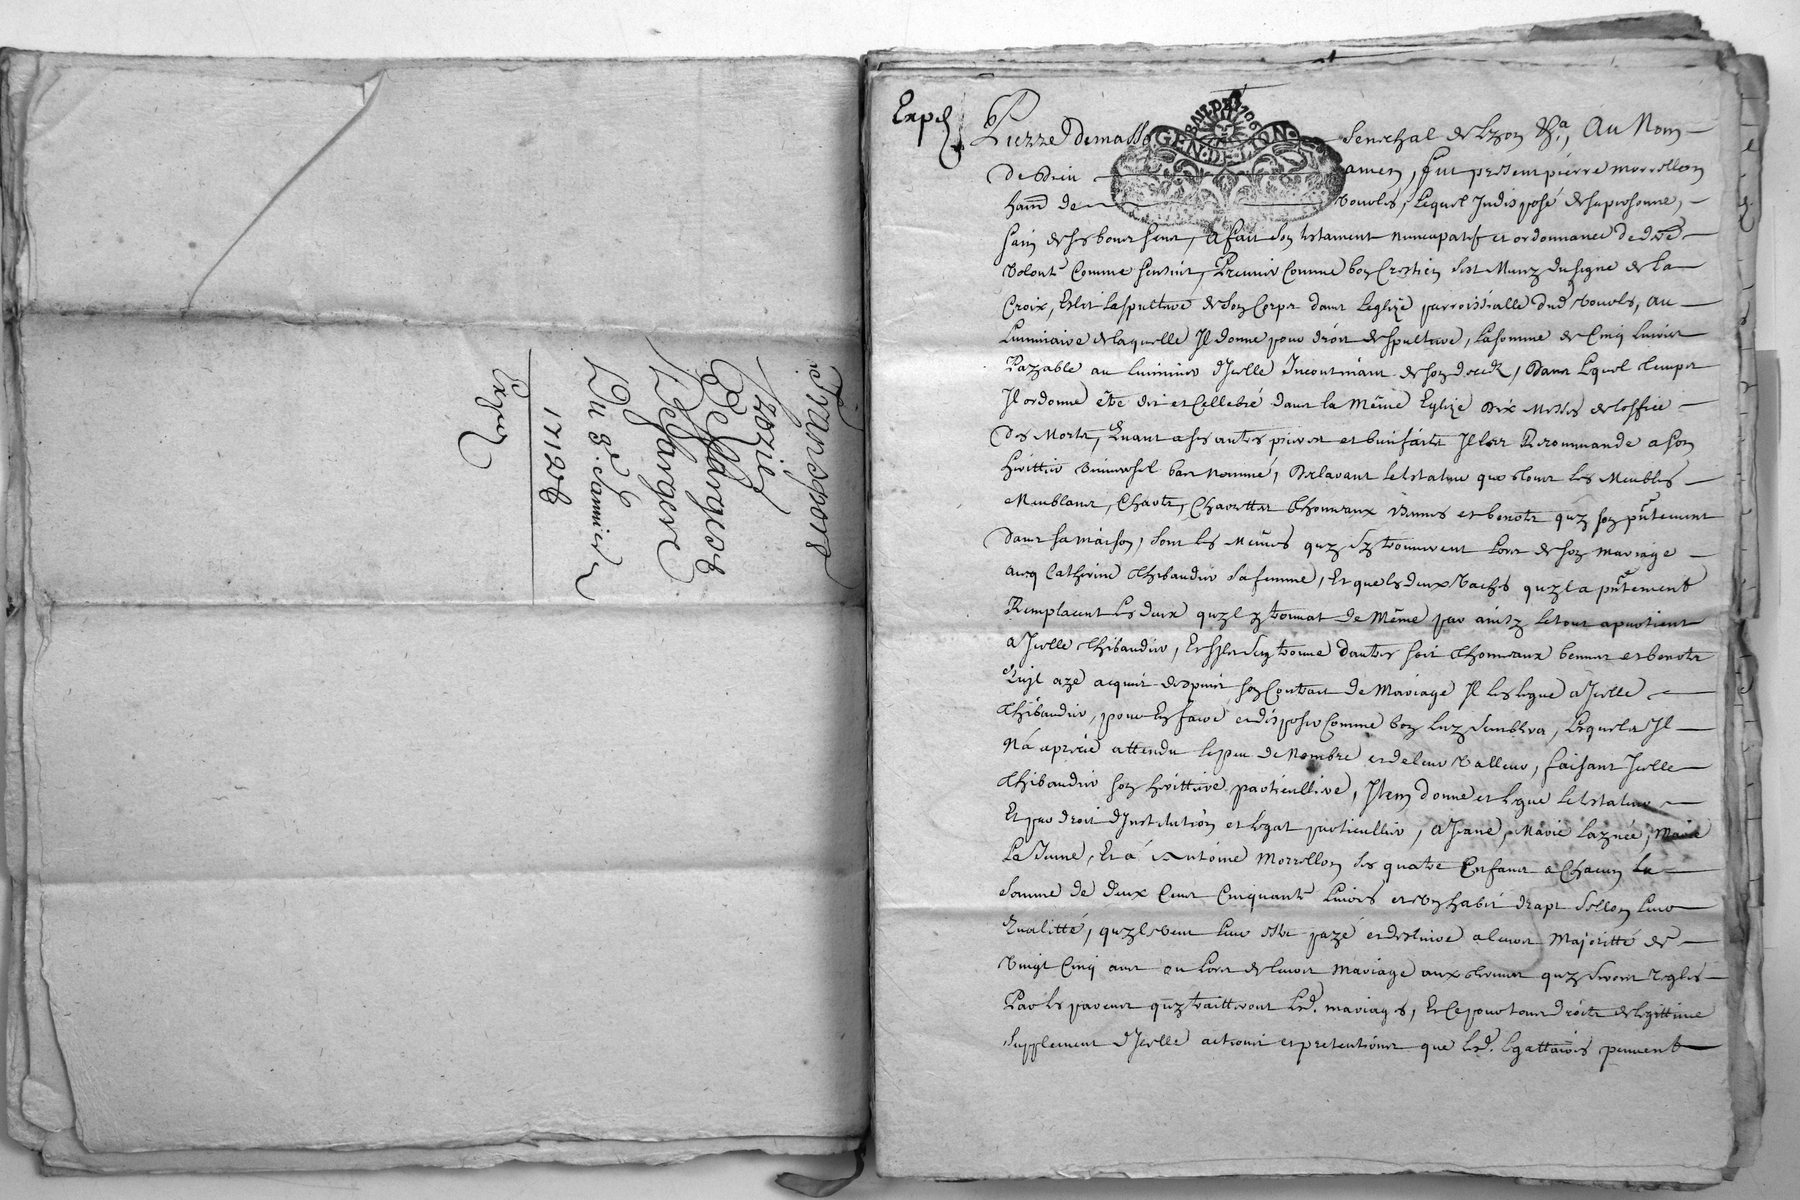 François
Desvergers
Desvergere
Du 8e Janvier
1712
Expéd
Expéd
Pierre Demasso Senechal de Lyon &a, Au Nom
de Dieu amen, fut present pierre morrellon
habnt de Vourles, Lequel Indisposé de sa personne,
sain de ses bons sens, a fait son testament nuncupatif et ordonnance de der.e
Volonté Comme sensuit, Premier Comme bon Crestien sest Muny du signe de la
Croix, Eslit la sepulture de son Corps dans Leglize parroissialle dud Vourles, au
Luminaire de laquelle Il donne pour droit de sepulture, la somme de Cinq Livres
Payable au luminier dicelle Incontinant de son decedz, Dans Lequel temps
Il ordonne être dit et Cellebré dans la Même Eglize dix Messes de loffice
des Morts, Quant a ses autres prieres et bienfaits Il les Recommande a son
herittier Universel bas Nommé, Declarant le testateur que tous les Meubles
Meublans, Chars, Charettes thonneaux bennes et benots quy son pntement
dans sa maison, sont les Mêmes quy sy trouverent Lors de son mariage
avec Catherine Thibaudier sa femme, et que les deux Vaches quyl a pntement
Remplacent les deux quyl y trouvat de Même par ainsy le tout apartient
a Icelle Thibaudier, Et sil sen trouve dautres soit thonneaux bennes et benots
Quil aye acquit despuis son Contrat de Mariage Il les legue a Icelle
Thibaudier, pour En faire et disposer Comme bon luy semblera, lesquels Il
Na aprecié attendu le peu de Nombre et de leur Valleur, faisant Icelle
Thibaudier son herittiere particulliere, Item donne et legue le testateur
Et par droit dInstitution et legat particullier, a Jeane, Marie laynée, Marie
La Jeune, Et a Antoine Morrellon ses quatre Enfans a Chacun la
somme de deux Cens Cinquante Livres et Un habit drapt sellon leur
Qualitté, quyl veut leur estre payé et deslivré a leurs Majoritté de
Vingt Cinq ans ou Lors de leurs Mariage aux termes quy seront reglés
Par les parens qui traitteront Lesd. mariages, Et Ce pour tous droits de legittime
supplement dIcelle actions et pretentions que Lesd. Legattaires peuvent